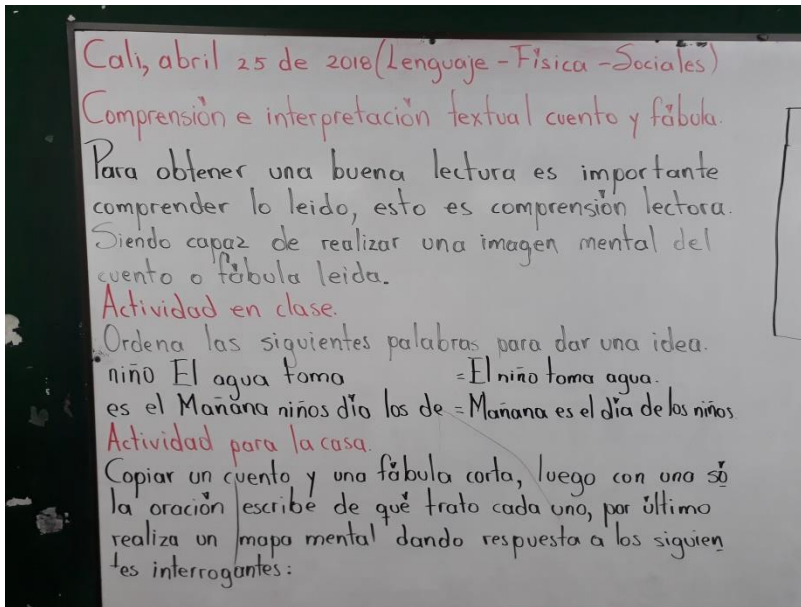 Cali, abril 25 de 2018 (Lenguaje - Física - Sociales)
Comprensión e interpretación textual cuento y fábula.
Para obtener una buena lectura es importante
comprender lo leido, esto es comprensión lectora.
Siendo capaz de realizar una imagen mental del
cuento o fábula leida.
Actividad en clase.
Ordena las siguientes palabras para dar una idea.
niño El agua toma = El niño toma agua.
es el Mañana niños día los de = Mañana es el día de los niños
Actividad para la casa.
Copiar un cuento y una fábula corta, luego con una só
la oración escribe de qué trato cada uno, por último
realiza un mapa mental dando respuesta a los siguien
tes interrogantes: